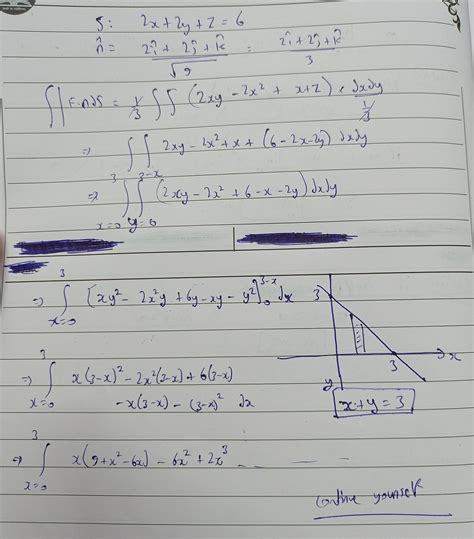 S: 2x+2y+z = 6
n̂ = (2î + 2ĵ + k̂)/√9 = (2î + 2ĵ + k̂)/3
∬ F.n ds = 1/3 ∬ (2xy - 2x² + x+z) × dxdy/(1/3)
⇒ ∬ 2xy - 2x² + x + (6-2x-2y) dxdy
⇒ ∫_{x=0}^{3} ∫_{y=0}^{3-x} (2xy - 2x² + 6 - x - 2y) dxdy
⇒ ∫_{x=0}^{3} [xy² - 2x²y + 6y - xy - y²]_0^{3-x} dx
3
3
x
y
x+y=3
⇒ ∫_{x=0}^{3} x(3-x)² - 2x²(3-x) + 6(3-x)
-x(3-x) - (3-x)² dx
⇒ ∫_{x=0}^{3} x(9+x²-6x) - 6x² + 2x³ _ _ _
yourself